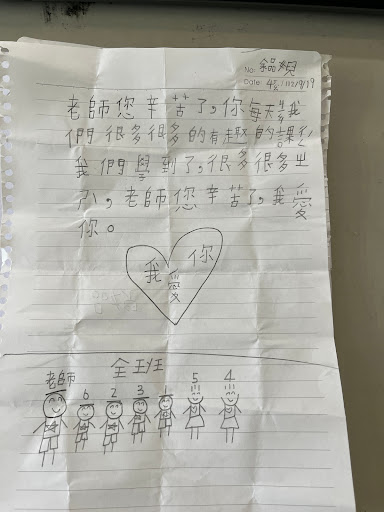 No:
Date: 112/9/19
老師您辛苦了,你每天我
們很多很多的有趣的課
我們學到了,很多很多
,老師您辛苦了,我愛
你。
我愛你
全班
老師 6 2 3 1 5 4